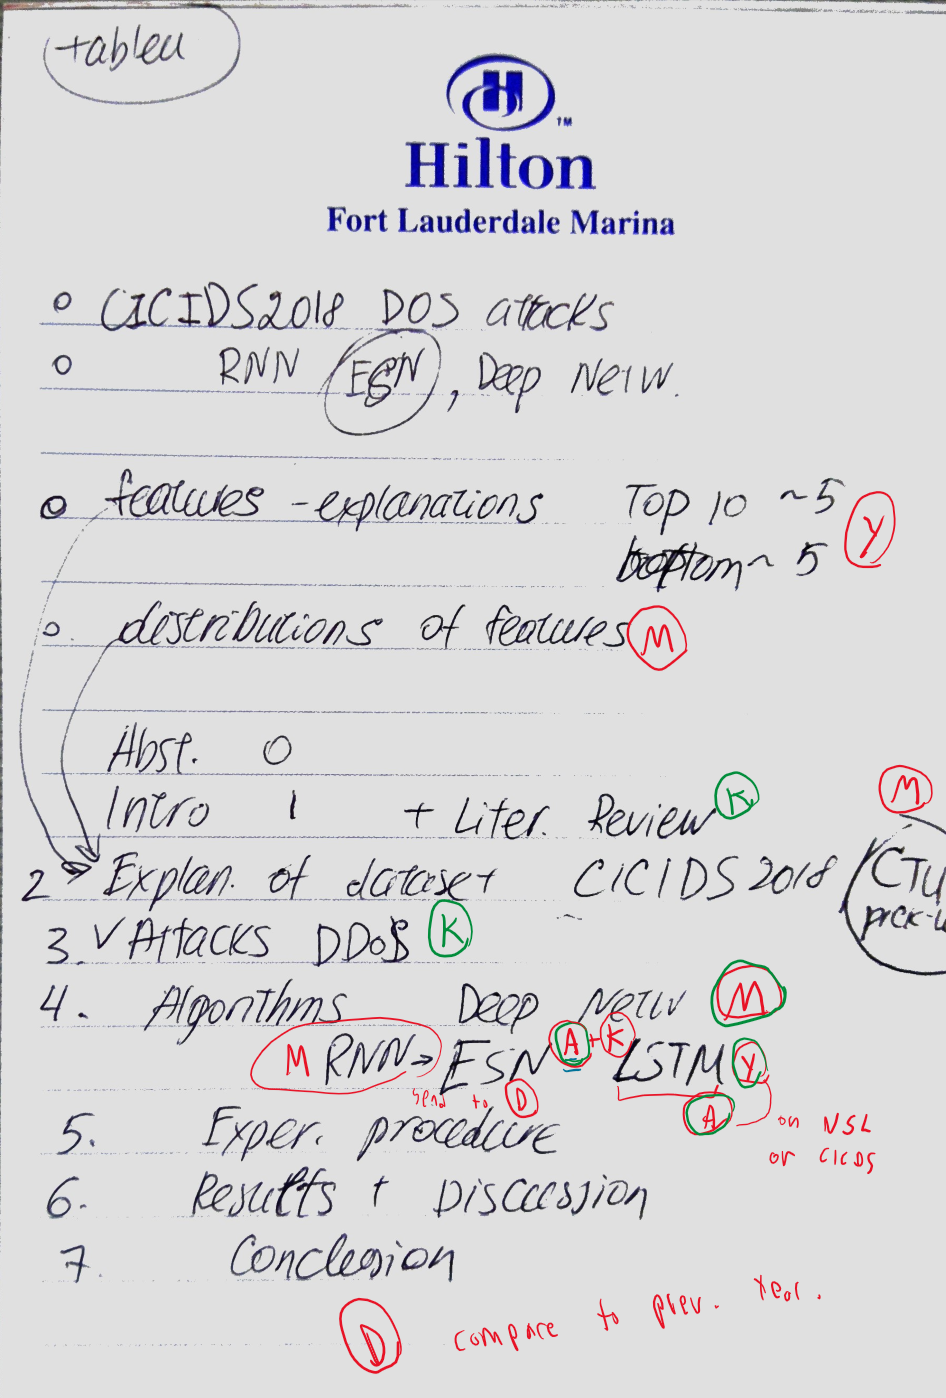 tableu
H
TM
Hilton
Fort Lauderdale Marina
CICIDS2018 DOS attacks
RNN ESN, Deep Netw.
features - explanations Top 10 ~ 5 Y
bottom ~ 5
distributions of features M
Abst. 0
Intro 1 + Liter. Review K M
2 Explan. of dataset CICIDS 2018 CTU
3. ✓ Attacks DDoS K
4. Algorithms Deep Netw M
M RNN → ESN A + K LSTM Y
send to D A on NSL
5. Exper. procedure or CICDS
6. Results + Discussion
7. Conclusion
D compare to prev. year.